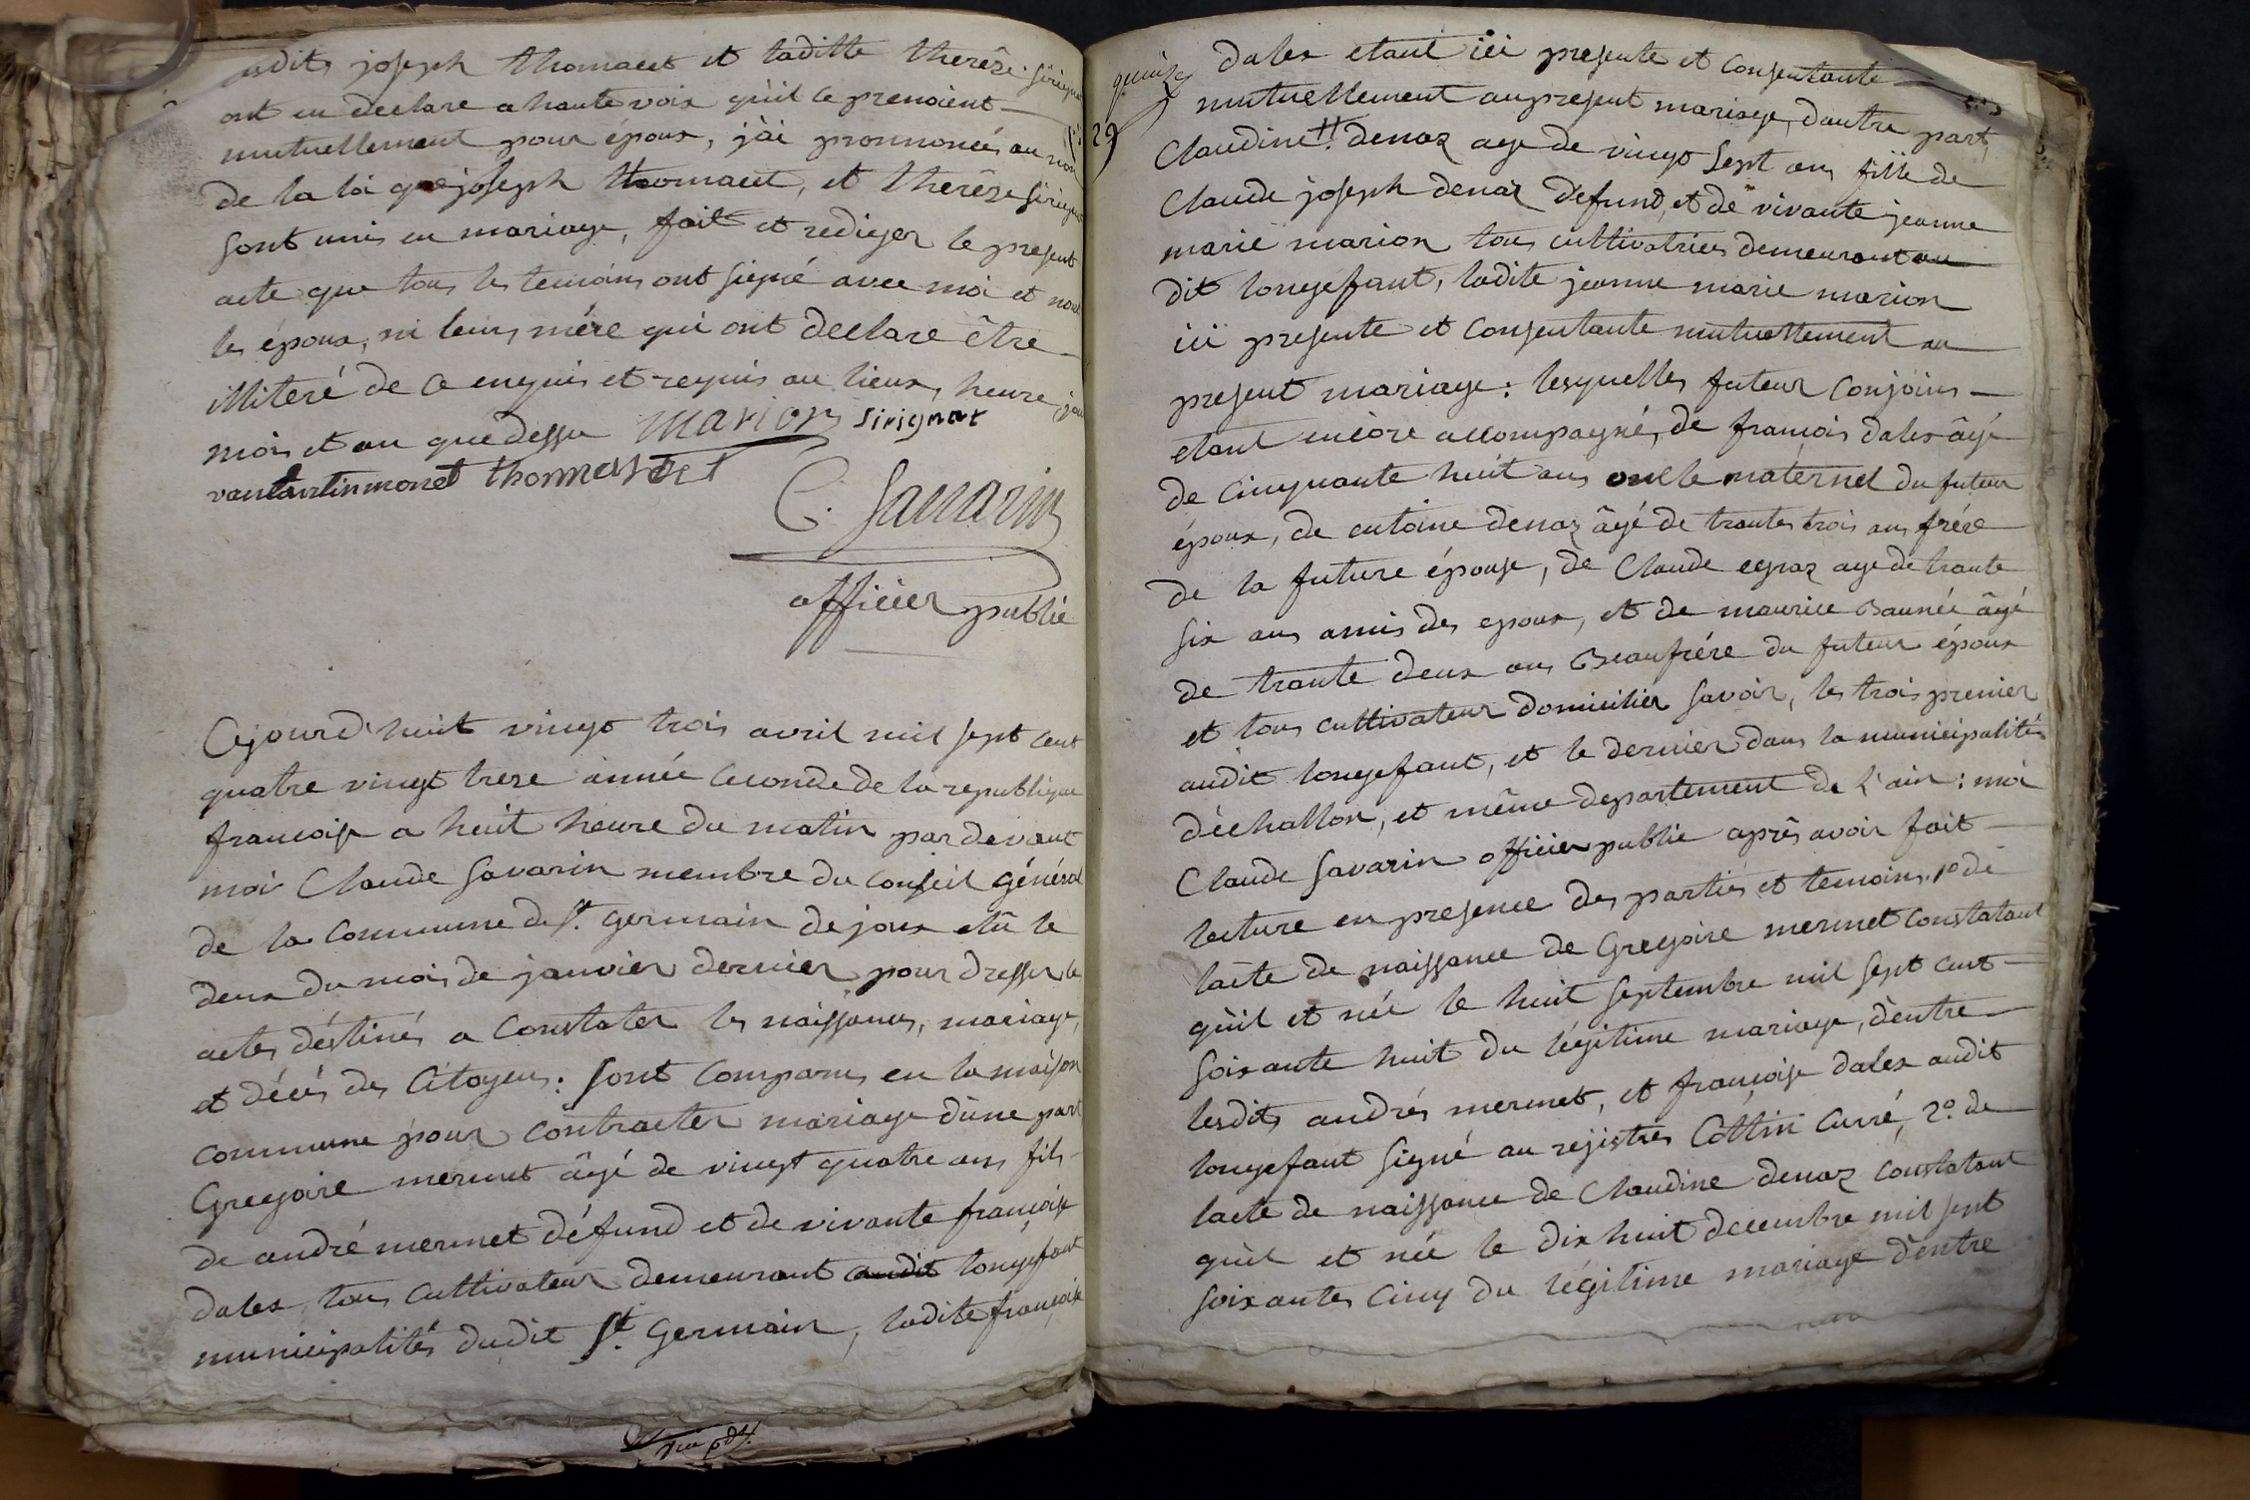 susdits joseph thomacet et laditte therêze sirignat
ont eu declare a haute voix qu'il ce prenoient
mutuellement pour époux, j'ai pronnoncés au nom
de la loi que joseph thomacet, et therêze sirignat
sont unis en mariage, fait et rediger le present
acte que tous les temoins ont signé avec moi et non
les époux, ni leurs mére qui ont declare être
illiteré de ce enquis et requis au lieux, heure, jour
mois et an que dessu marion sirignat
thomasset
C. Savarin
officier public
Cejourd'huit vingt trois avril mil sept cent
quatre vingt treze année ceconde de la republique
francoise a huit heure du matin par devant
moi Claude Savarin membre du conseil général
de la commune de St. germain de joux elû le
deux du mois de janvier dernier pour dresser les
actes déstinés a constater les naissances, mariage,
et décés des Citoyens : sont comparus en la maison
commune pour contracter mariage d'une part
Gregoire mermet âgé de vingt quatre ans fils
de andré mermet défund et de vivante françoise
dalex, tous cultivateur demeurant audit longefant
municipalités dudit St. Germain, ladite françoise
quinze
29
dalex etant ici presente et consentante
mutuellement au present mariage, d'autre part,
Claudine denaz age de vingt sept ans fille de
Claude joseph denaz defund, et de vivante jeanne
marie marion tous cultivatrices demeurant au
dit longefant, ladite jeanne marie marion
ici presente et consentante mutuellement au
present mariage : lesquelles futeur conjoins
etant encore accompagné, de francois dalex âgé
de cinquante huit ans oncle maternel du futeur
époux, de entoine denaz âgé de trante trois ans frére
de la future épouse, de Claude egraz age de trante
six ans amis des epoux, et de maurice Baunée âgé
de trante deux ans Beaufrére du futeur époux
et tous cultivateur domicilier savoir, les trois premier
audit longefant, et le dernier dans la municipalités
déchallon, et même departement de l'ain : moi
Claude Savarin officier public aprês avoir fait
lecture en presence des parties et temoins. 1º de
lacte de naissance de Gregoire mermet constatant
quil et née le huit septembre mil sept cent
soixante huit du légitime mariage, d'entre
lesdits andrés mermet, et françoise dalex audit
longefant signé au rejistres Cottin Curré, 2º. de
lacte de naissance de Claudine denaz constatant
quil et née le dix huit decembre mil sept
soixantes cinq du légitime mariage d'entre